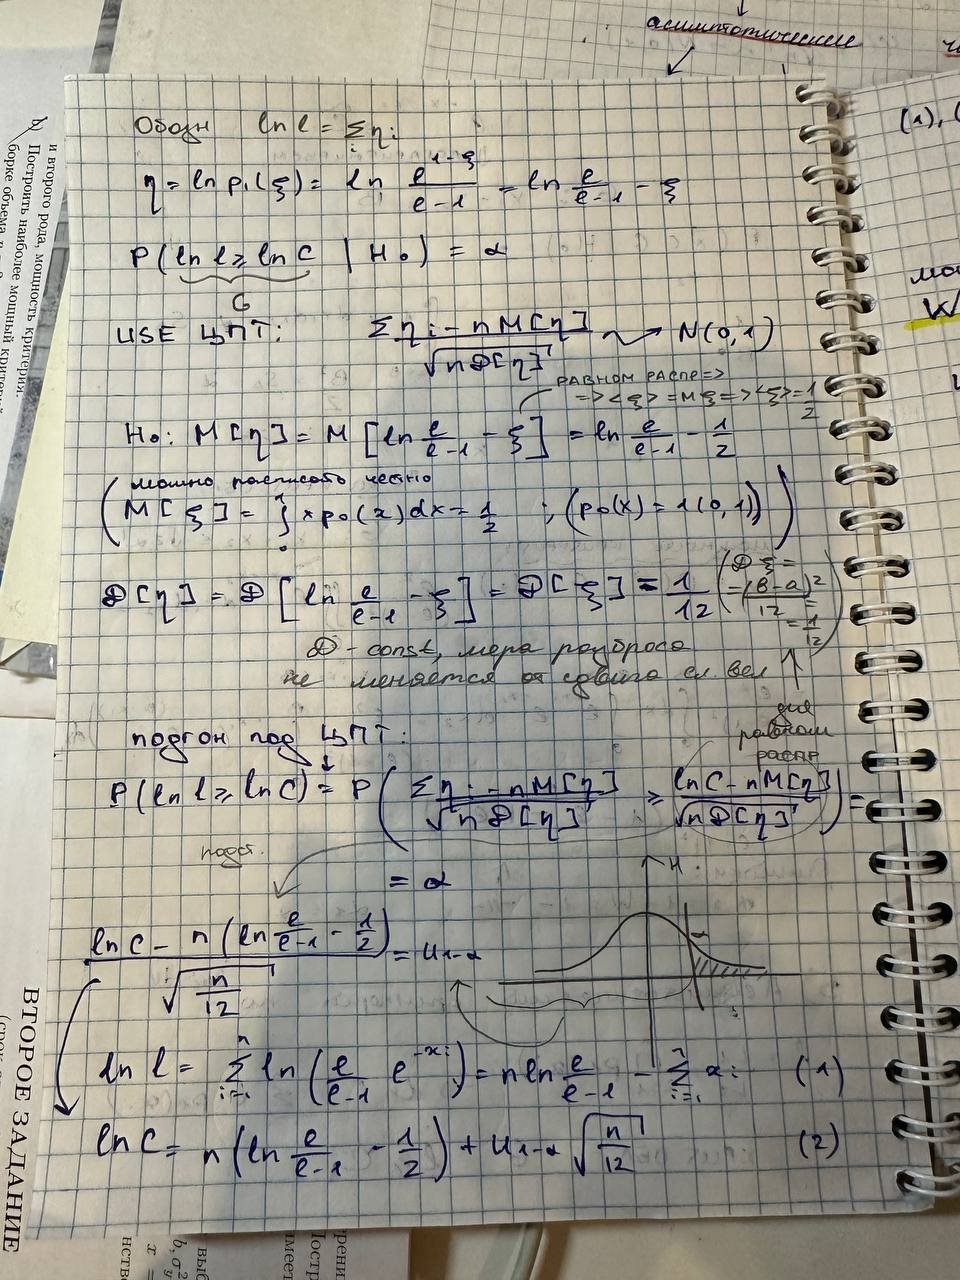 асимптотические
Обозн ln l = Σ ηi
i
η = ln p1(ξ) = ln e^(1-ξ)/(e-1) = ln e/(e-1) - ξ
P(ln l ≥ ln C | H0) = α
G
USE ЦПТ: (Σηi - nM[η])/√(nD[η]) ⤳ N(0,1)
РАВНОМ РАСПР =>
=> <ξ> = Mξ => <ξ> = 1/2
H0: M[η] = M[ln e/(e-1) - ξ] = ln e/(e-1) - 1/2
(можно расписать честно
M[ξ] = ∫₀¹ x p0(x)dx = 1/2 ; (p0(x) = 1(0,1)))
D[η] = D[ln e/(e-1) - ξ] = D[ξ] = 1/12 (Dξ = (B-a)²/12 = 1/12)
D - const, мера разброса
не меняется от сдвига сл. вел
для
равном
распр
подгон под ЦПТ:
P(ln l ≥ ln C) = P((Σηi - nM[η])/√(nD[η]) ≥ (ln C - nM[η])/√(nD[η])) =
подст.
= α
H
α
(ln C - n(ln e/(e-1) - 1/2))/√(n/12) = u1-α
ln l = Σ(i=1..n) ln(e/(e-1) e^(-xi)) = n ln e/(e-1) - Σ(i=1..n) xi (1)
ln C = n(ln e/(e-1) - 1/2) + u1-α √(n/12) (2)
(1), (
W
и второго рода, мощность критерия.
b) Построить наиболее мощный критерий
борке объема
ВТОРОЕ ЗАДАНИЕ
(срок